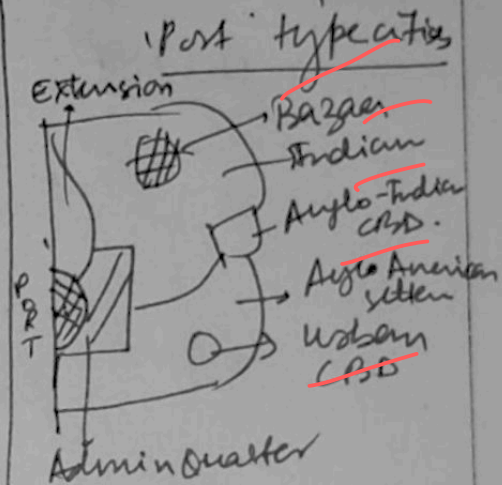 'Port' type cities
Extension
Bazaar
Indian
Anglo-Indian
CBD.
Anglo American
settlen
Urban
CBD
PORT
Admin Quarter